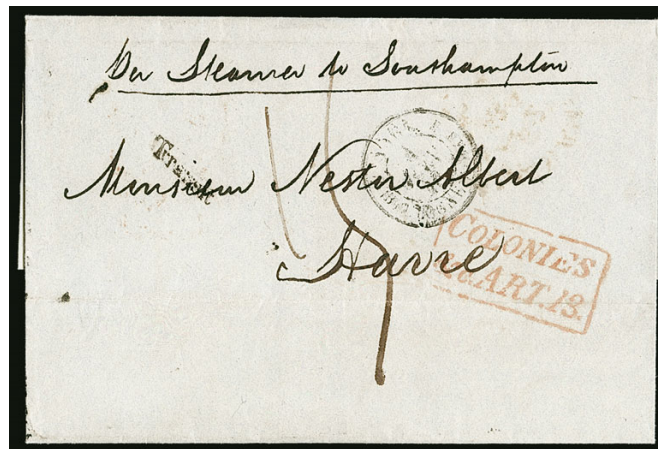 Per Steamer to Southampton
Transit
Monsieur Nestor Albert
Havre
15
COLONIES
&c. ART. 13.